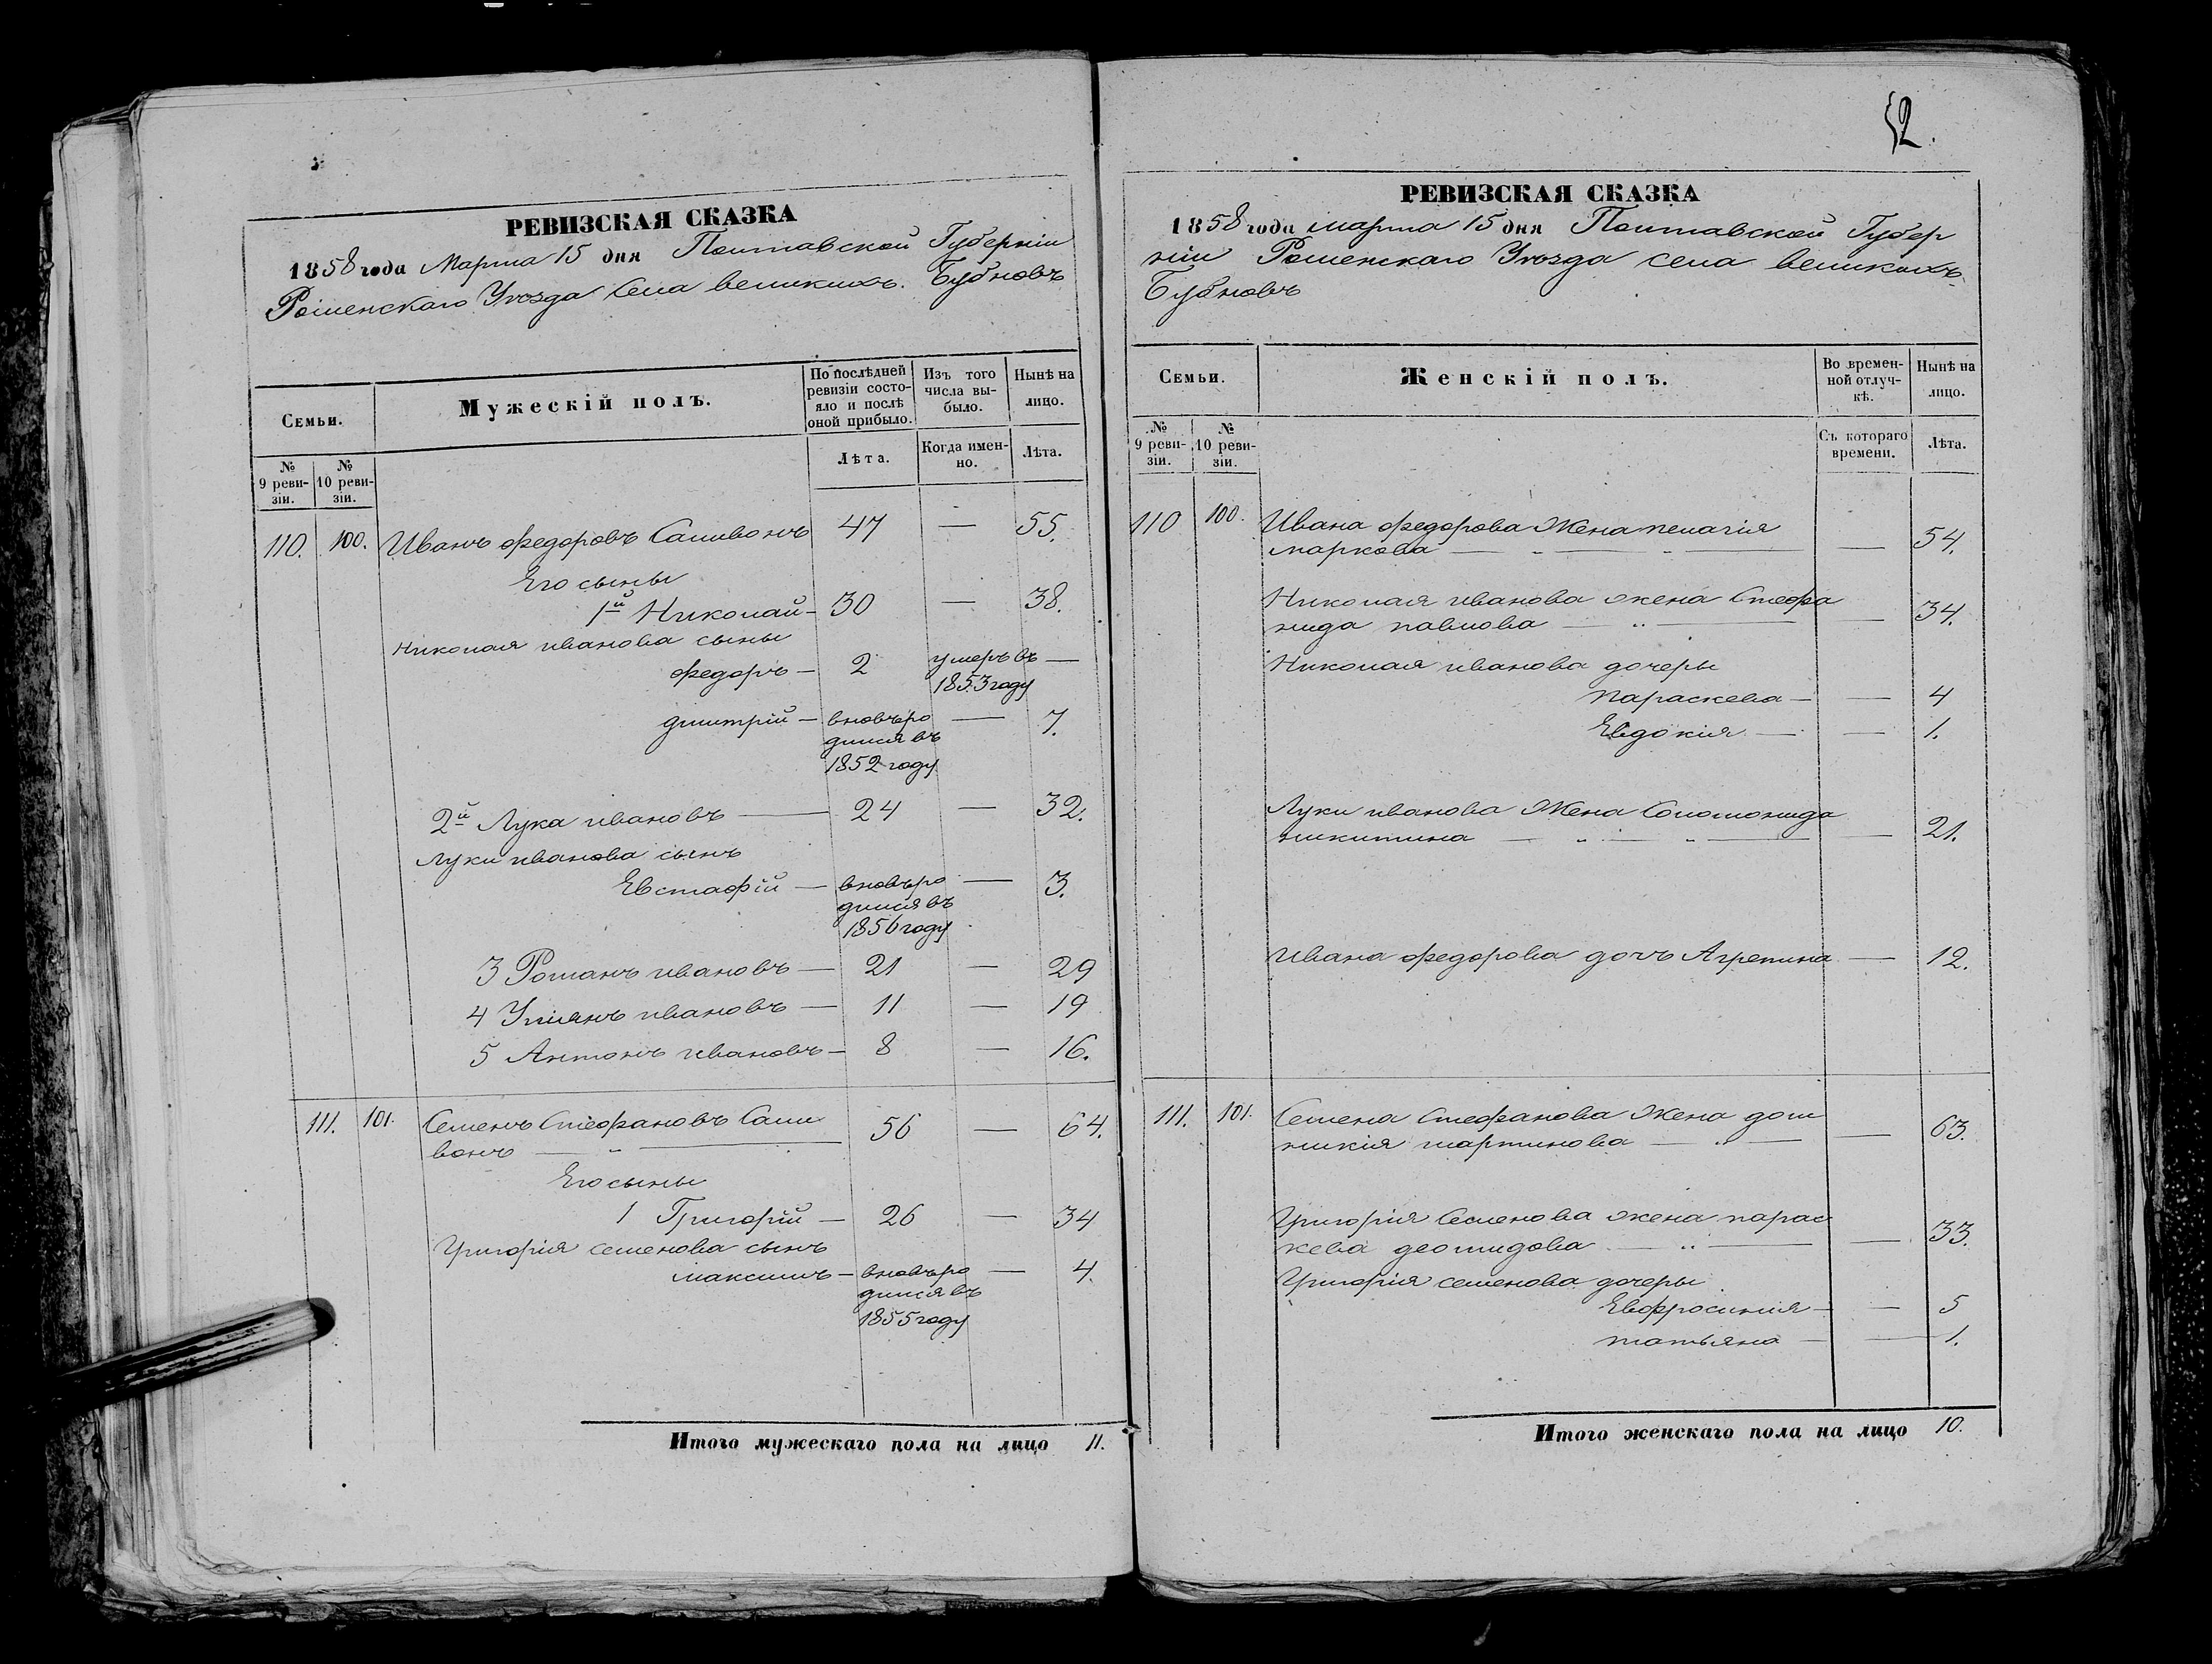 РЕВИЗСКАЯ СКАЗКА
1858 года Марта 15 дня Полтавской Губерніи
Роменскаго Уѣзда Села великихъ Бубновъ
Семьи.
Мужескій полъ.
По послѣдней ревизіи состояло и послѣ оной прибыло.
Изъ того числа выбыло.
Нынѣ на лицо.
№ 9 ревизіи.
№ 10 ревизіи.
Лѣта.
Когда именно.
Лѣта.
110. 100. Иванъ федоровъ Саливонъ 47 — 55.
Его сыны
1й Николай — 30 — 38.
Николая иванова сыны
федоръ — 2 умеръ въ —
1853 году
дмитрій — вновь ро — 7.
дился въ
1852 году
2й Лука ивановъ — 24 — 32.
Луки иванова сынъ
Евстафій — вновь ро — 3.
дился въ
1856 году
3 Романъ ивановъ — 21 — 29
4 Уліянъ ивановъ — 11 — 19
5 Антонъ ивановъ — 8 — 16.
111. 101. Семенъ Стефановъ Сали 56 — 64.
вонъ — „ —
Его сыны
1 Григорій — 26 — 34
Григорія семенова сынъ
максимъ — вновь ро — 4.
дился въ
1855 году
Итого мужескаго пола на лицо 11.
52.
РЕВИЗСКАЯ СКАЗКА
1858 года марта 15 дня Полтавской Губер
ніи Роменскаго Уѣзда села великихъ
Бубновъ
Семьи.
Женскій полъ.
Во временной отлучкѣ.
Нынѣ на лицо.
№ 9 ревизіи.
№ 10 ревизіи.
Съ котораго времени.
Лѣта.
110 100. Ивана федорова Жена пелагія
маркова — „ — „ — — 54.
Николая иванова жена Стефа
нида павлова — „ — — 34.
Николая иванова дочеры
параскева — — 4
Евдокія — — 1.
Луки иванова Жена Соломонида
никитина — „ — „ — — 21.
Ивана федорова дочъ Агрепина — 12.
111. 101. Семена Стефанова Жена дом
никія мартинова — „ — — 63.
Григорія Семенова жена парас
кева деомидова — „ — — 33.
Григорія семенова дочеры
Евфросинія — — 5
татьяна — — 1.
Итого женскаго пола на лицо 10.